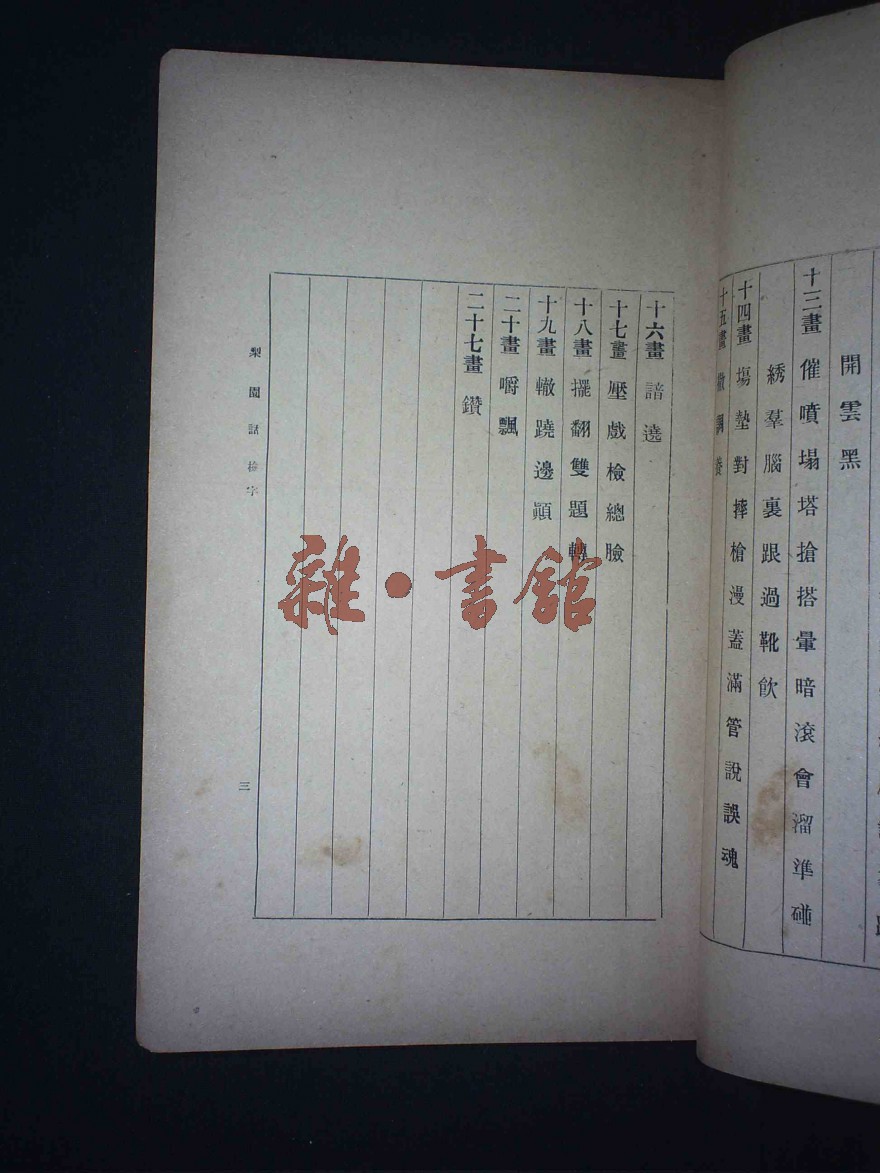 開雲黑
十三畫 催噴塌塔搶搭暈暗滾會溜準碰
綉羣腦裏跟過靴飲
十四畫 塲墊對摔槍漫蓋滿管說誤魂
十五畫
十六畫 諳遶
十七畫 壓戲檢總臉
十八畫 擺翻雙題轉
十九畫 轍蹺邊顚
二十畫 嚼飄
二十七畫 鑽
梨園話檢字
三
雜·書館